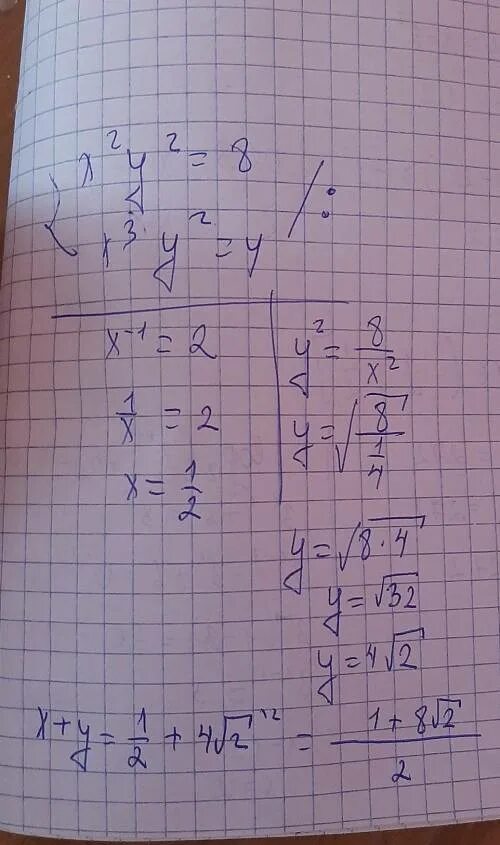 x²y² = 8
x³y² = 4 /:
x⁻¹ = 2
1/x = 2
x = 1/2
y² = 8/x²
y = √(8/(1/4))
y = √(8·4)
y = √32
y = 4√2
x+y = 1/2 + 4√2 ^{/2} = (1+8√2)/2